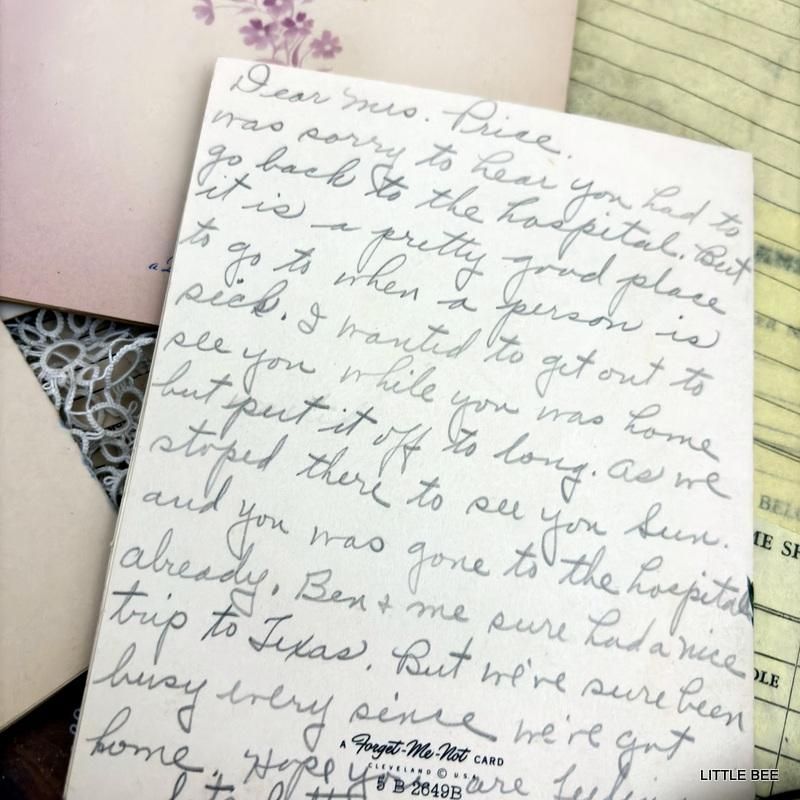 Dear Mrs. Price.
was sorry to hear you had to
go back to the hospital. But
it is a pretty good place
to go to when a person is
sick. I wanted to get out to
see you while you was home
but put it off to long. as we
stoped there to see you Sun.
and you was gone to the hospital
already. Ben & me sure had a nice
trip to Texas. But we've sure been
busy every since we've got
home. Hope you are
A Forget-Me-Not CARD
CLEVELAND © U.S.A.
5 B 2649B
ME SH
LITTLE BEE